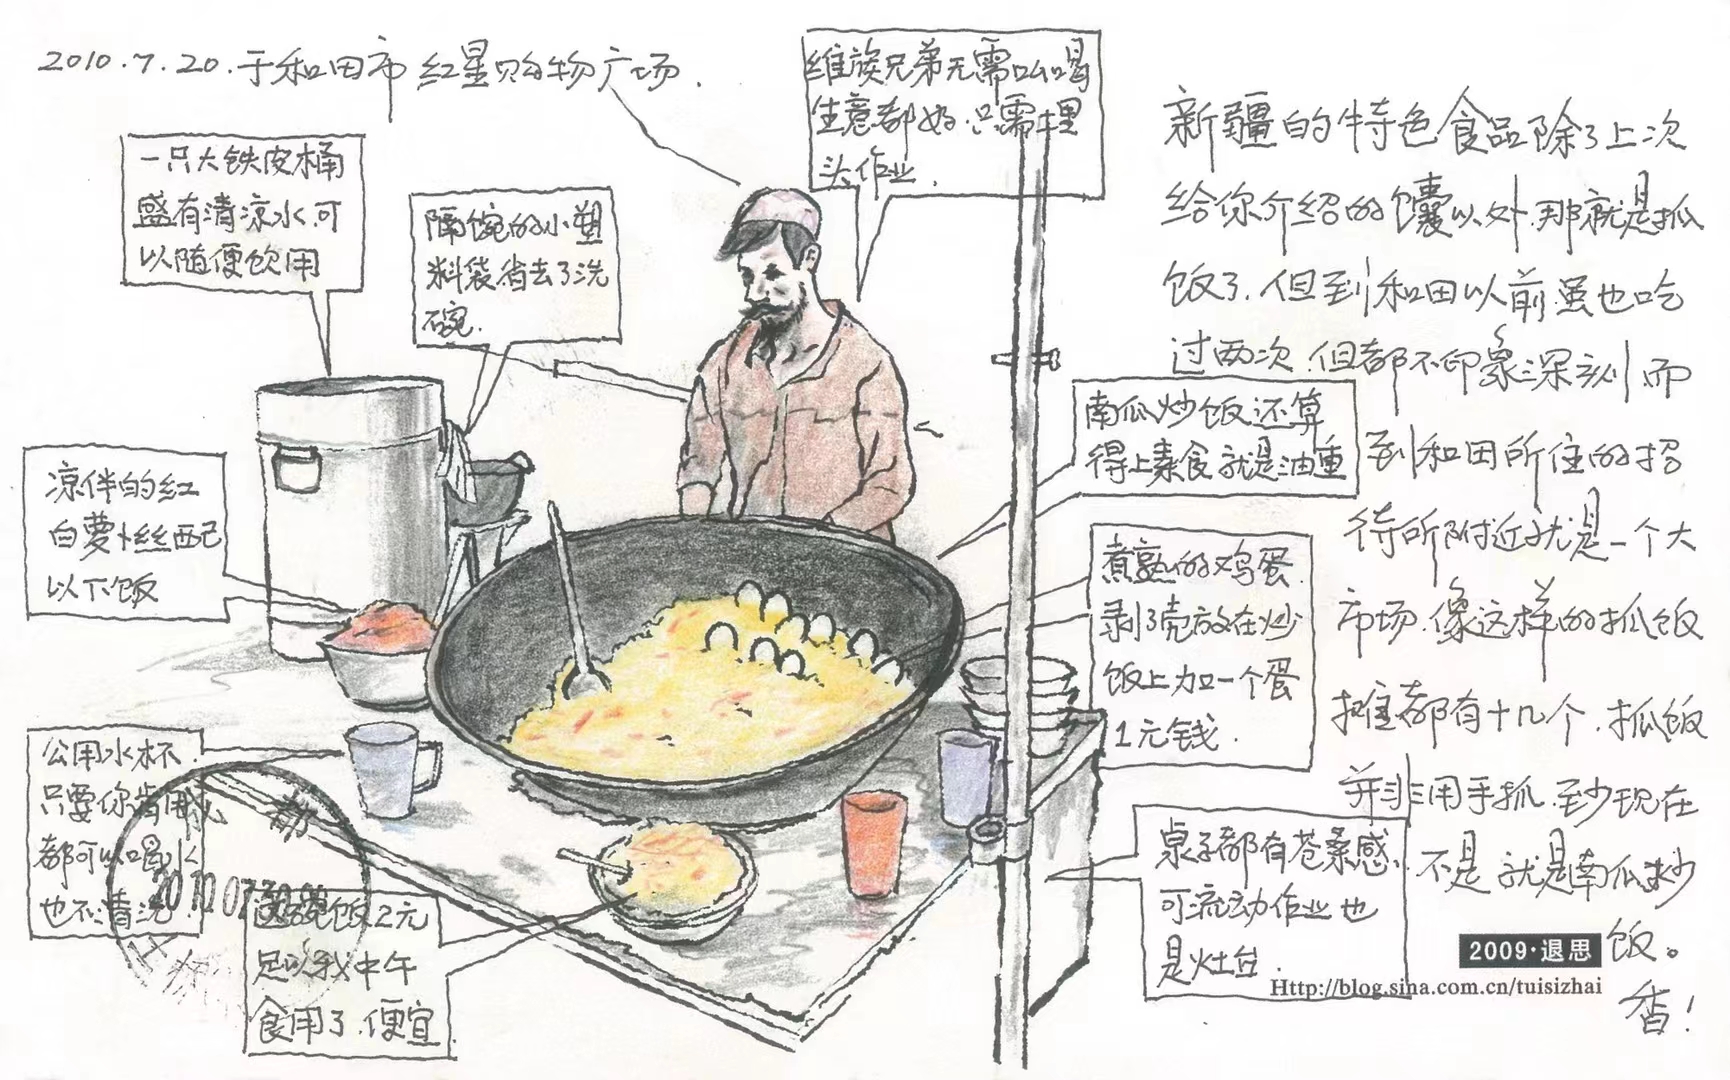 2010.7.20.于和田市 红星购物广场.
维族兄弟无需吆喝
生意都好.只需埋
头作业.
一只大铁皮桶
盛有清凉水.可
以随便饮用
隔碗的小塑
料袋.省去了洗
碗.
新疆的特色食品除了上次
给你介绍的馕以外.那就是抓
饭了.但到和田以前虽也吃
过两次.但都不印象深刻而
到和田所住的招
待所附近就是一个大
市场.像这样的抓饭
摊都有十几个.抓饭
并非用手抓.至少现在
不是 就是南瓜炒
饭。
香!
南瓜炒饭还算
得上素食.就是油重
凉伴的红
白萝卜丝配
以下饭
煮熟的鸡蛋.
剥了壳放在炒
饭上加一个蛋
1元钱.
公用水杯.
只要你肯用
都可以喝水
也不清洗.
这碗饭2元
足以我中午
食用了.便宜
桌子都有苍桑感.
可流动作业也
是灶台.
2009·退思
Http://blog.sina.com.cn/tuisizhai